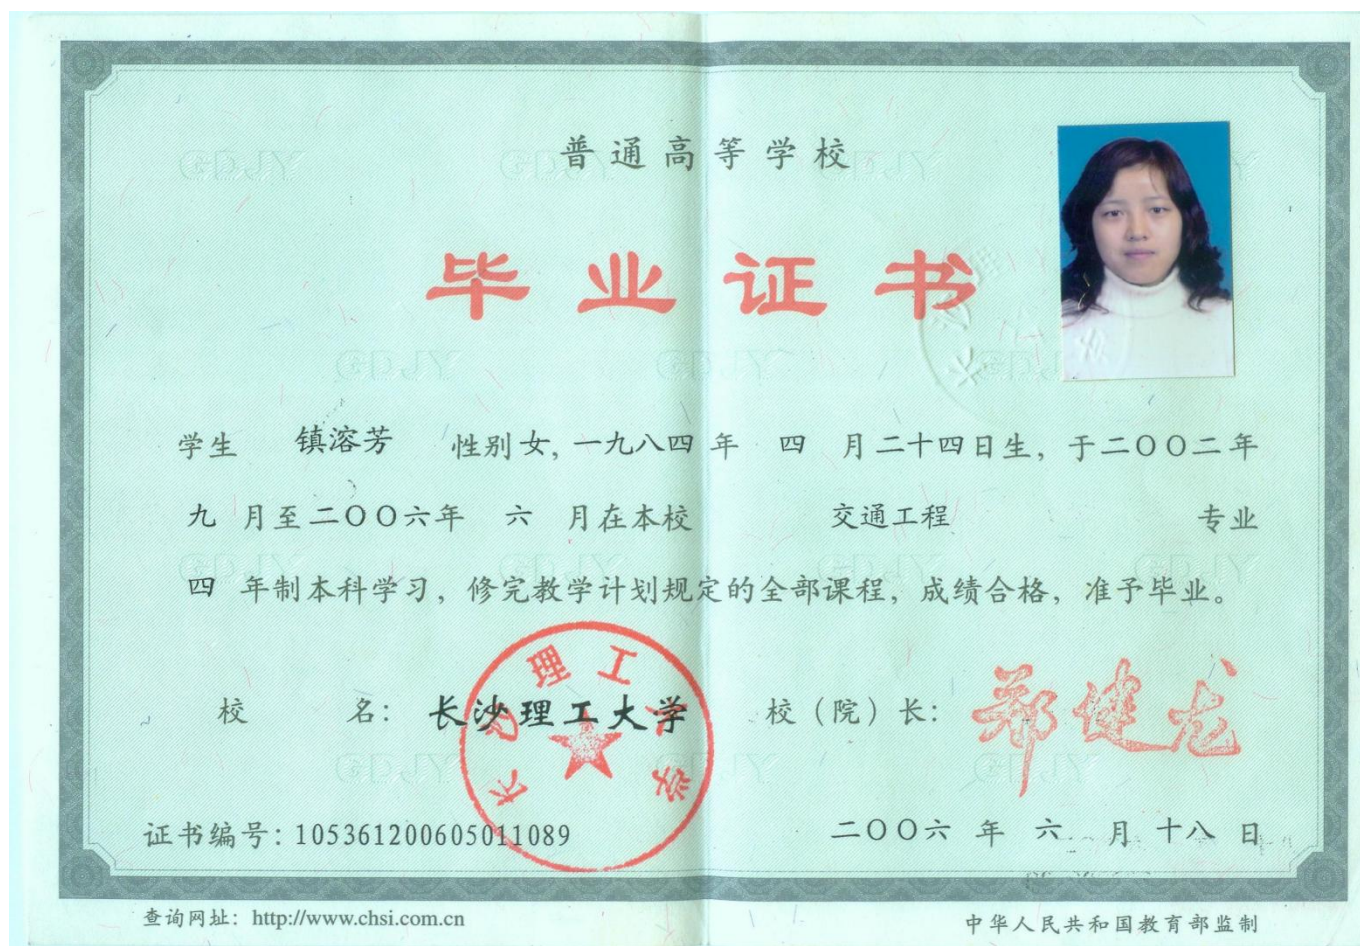 普通高等学校
毕业证书
学生 镇溶芳 性别女，一九八四年 四 月二十四日生，于二〇〇二年
九 月至二〇〇六年 六 月在本校 交通工程 专业
四 年制本科学习，修完教学计划规定的全部课程，成绩合格，准予毕业。
校 名：长沙理工大学 校（院）长：郑健龙
长沙理工大学
证书编号：105361200605011089 二〇〇六 年 六 月 十八 日
查询网址：http://www.chsi.com.cn 中华人民共和国教育部监制